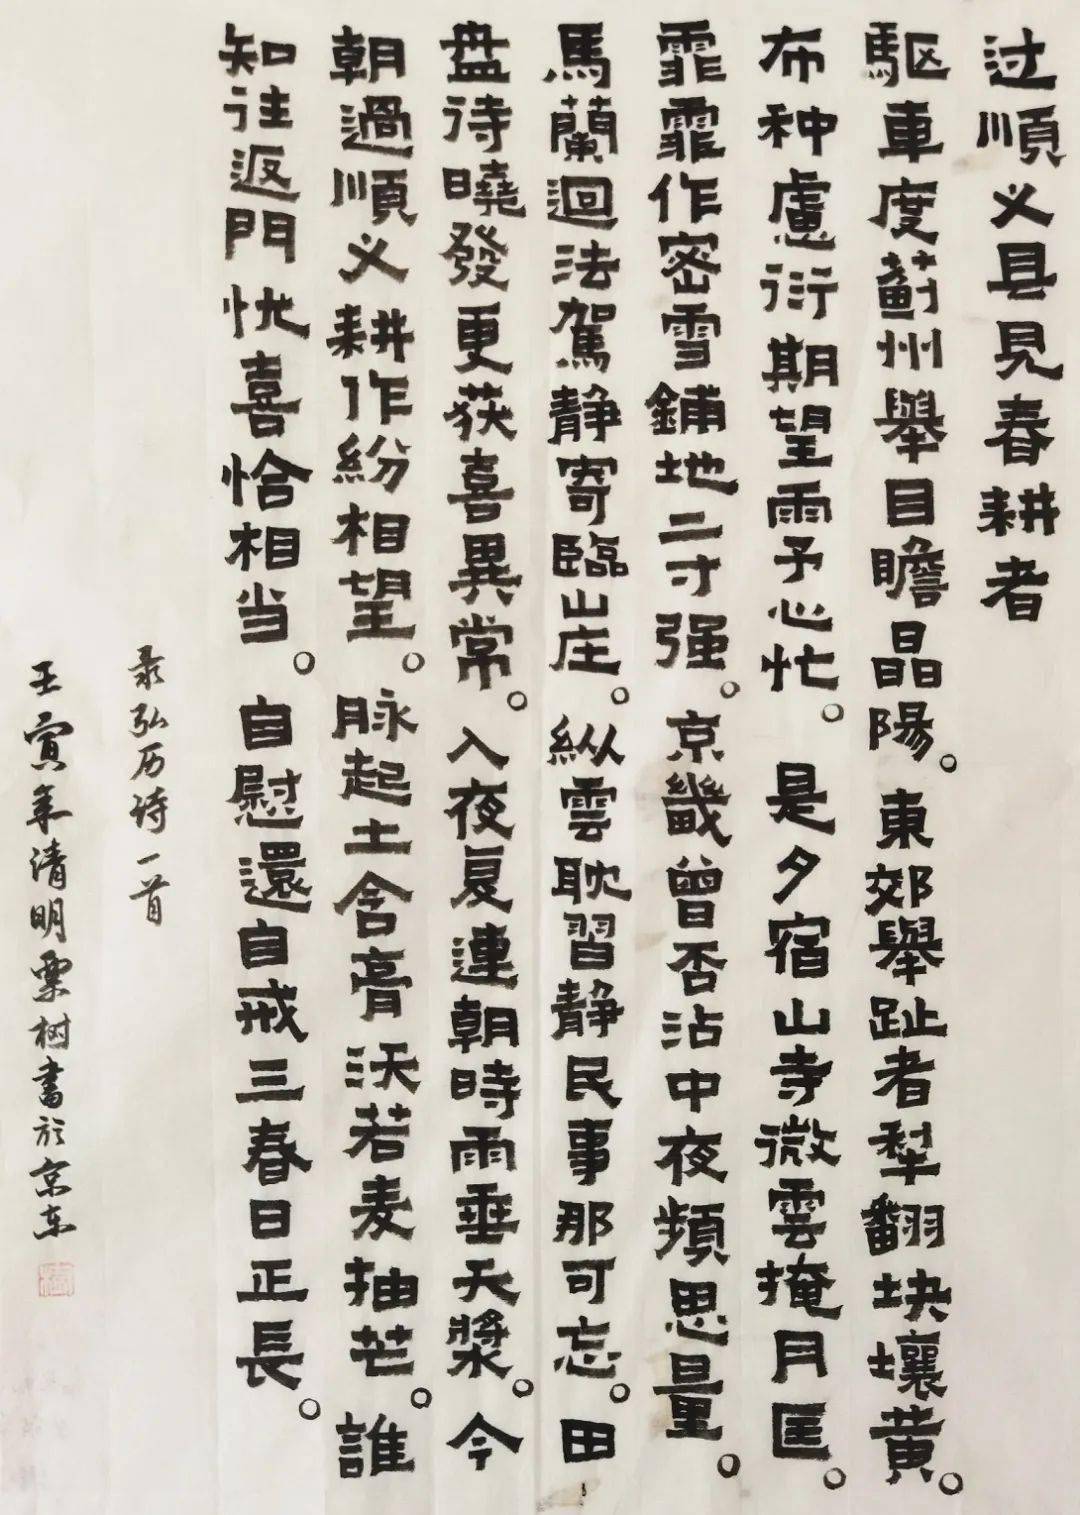 过順义县見春耕者
駆車度薊州舉目瞻晶陽。東郊舉趾者犁翻块壤黄。
布种慮衍期望雨予心忙。是夕宿山寺微雲掩月匡。
霏霏作密雪鋪地二寸强。京畿曾否沾中夜頻思量。
馬蘭迴法駕静寄臨山庄。縱雲耽習静民事那可忘。田
盘待曉發更获喜異常。入夜复連朝時雨垂天漿。今
朝過順义耕作紛相望。脉起土含膏沃若麦抽芒。誰
知往返門忧喜恰相当。自慰還自戒三春日正長。
录弘历诗一首
壬寅年清明栗树書於京东